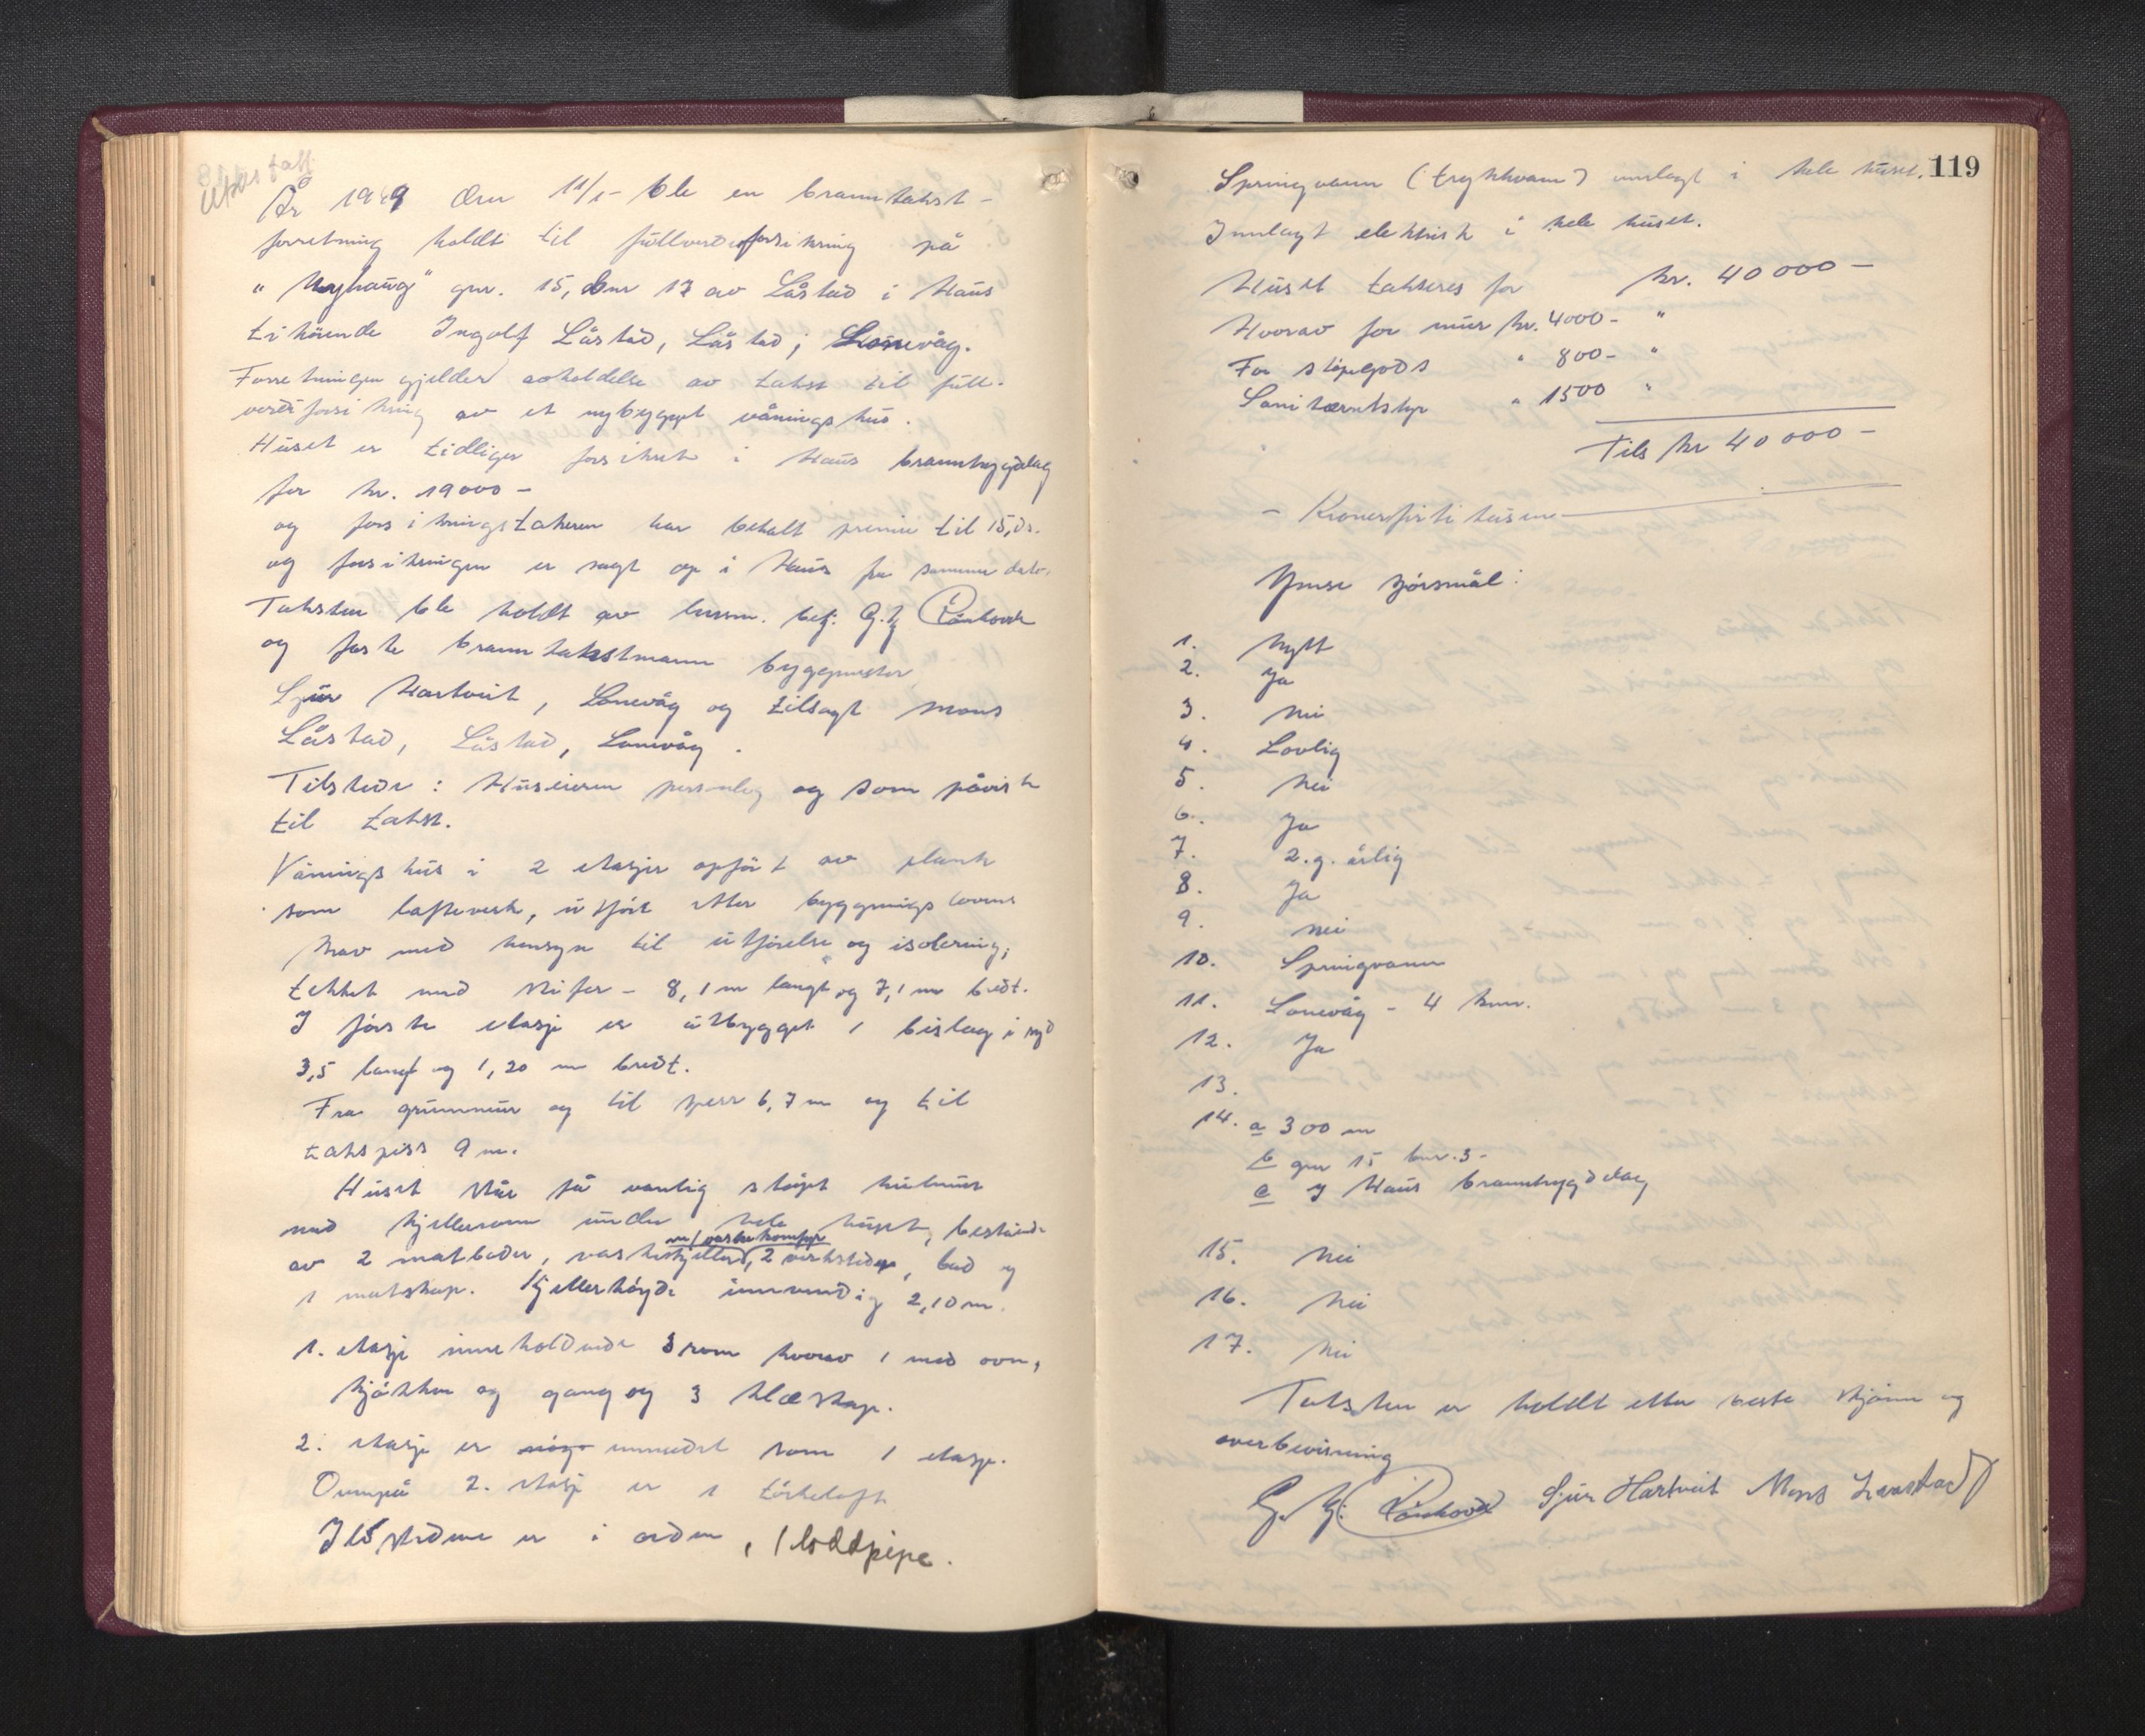 Utskr. takst
År 1949 den 11/5- ble en branntakst-
forretning holdt til fullverdiforsikring på
"Nyhaug" gnr. 15, bnr 17 av Låstad i Haus
tilhörende Ingolf Låstad, Låstad, Lonevåg.
Forretningen gjelder avholdelse av takst til full-
verdiforsikring av et nybygget våningshus.
Huset er tidliger forsikret i Haus brannbygdelag
for kr. 19000-
og forsikringstakeren har betalt premie til 15/ds.
og forsikringen er sagt op i Haus fra samme dato.
Taksten ble holdt av lensm. betj. G. Kj.
og faste branntakstmann byggmester
Sjur Hartveit, Lonevåg og tilsagt Mons
Låstad, Låstad, Lonevåg.
Tilstede: Huseieren personlig og som påviste
til takst.
Våningshus i 2 etasjer opfört av plank
som lafteverk, utfört etter bygningslovens
krav med hensyn til utförelse og isolering,
tekket med skifer - 8,1 m langt og 7,1 m bredt.
I förste etasje er utbygget 1 bislag i syd
3,5 langt og 1,20 m bredt.
Fra grunnmur og til sperr 6,7 m og til
takspiss 9 m.
Huset står på vanlig stöpt kulemur
med kjellerrom under hele huset, bestående
m/vaskekomfyr
av 2 matboder, vaskekjeller, 2 verksteder, bad og
1 matskap. Kjellerhöyde innvendig 2,10 m.
1. etasje inneholdende 3 rom hvorav 1 med ovn,
kjökken og gang og 3 klæskap.
2. etasje er innredet som 1 etasje.
Ovenpå 2. etasje er 1 törkeloft
Ildstedene er i orden, 1 loddpipe.
119
Springvann (trykkvann) innlagt i hele huset.
Innlagt elektrisk i hele huset.
Huset takseres for kr. 40 000-
Hvorav for mur kr. 4000- "
For stöpegods " 800- "
Sanitærutstyr " 1500 "
Tils kr 40 000-
- Kronerfirtitusen-
Ymse spörsmål:
1. Nytt
2. Ja
3. Nei
4. Lovlig
5. Nei
6. Ja
7. 2.g. årlig
8. Ja
9. Nei
10. Springvann
11. Lonevåg - 4 km.
12. Ja
13.
14. a 300 m
b gnr 15 bnr. 3-
c I Haus brannbygdelag
15. Nei
16. Nei
17. Nei
Taksten er holdt etter beste skjönn og
overbevisning
G. Kj. Sjur Hartveit Mons Laastad